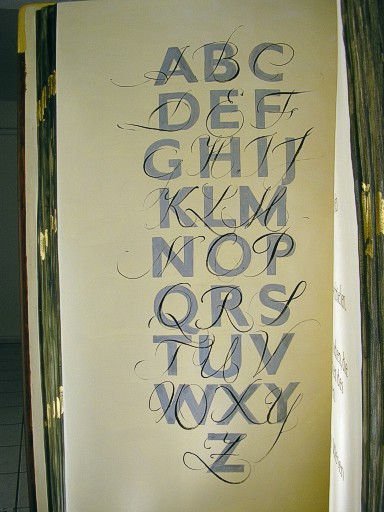 A B C
D E F
G H I J
K L M
N O P
Q R S
T U V
W X Y
Z